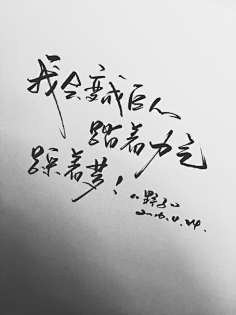 我会变成巨人
踏着力气
踩着梦！
《野子》
2016.4.24.